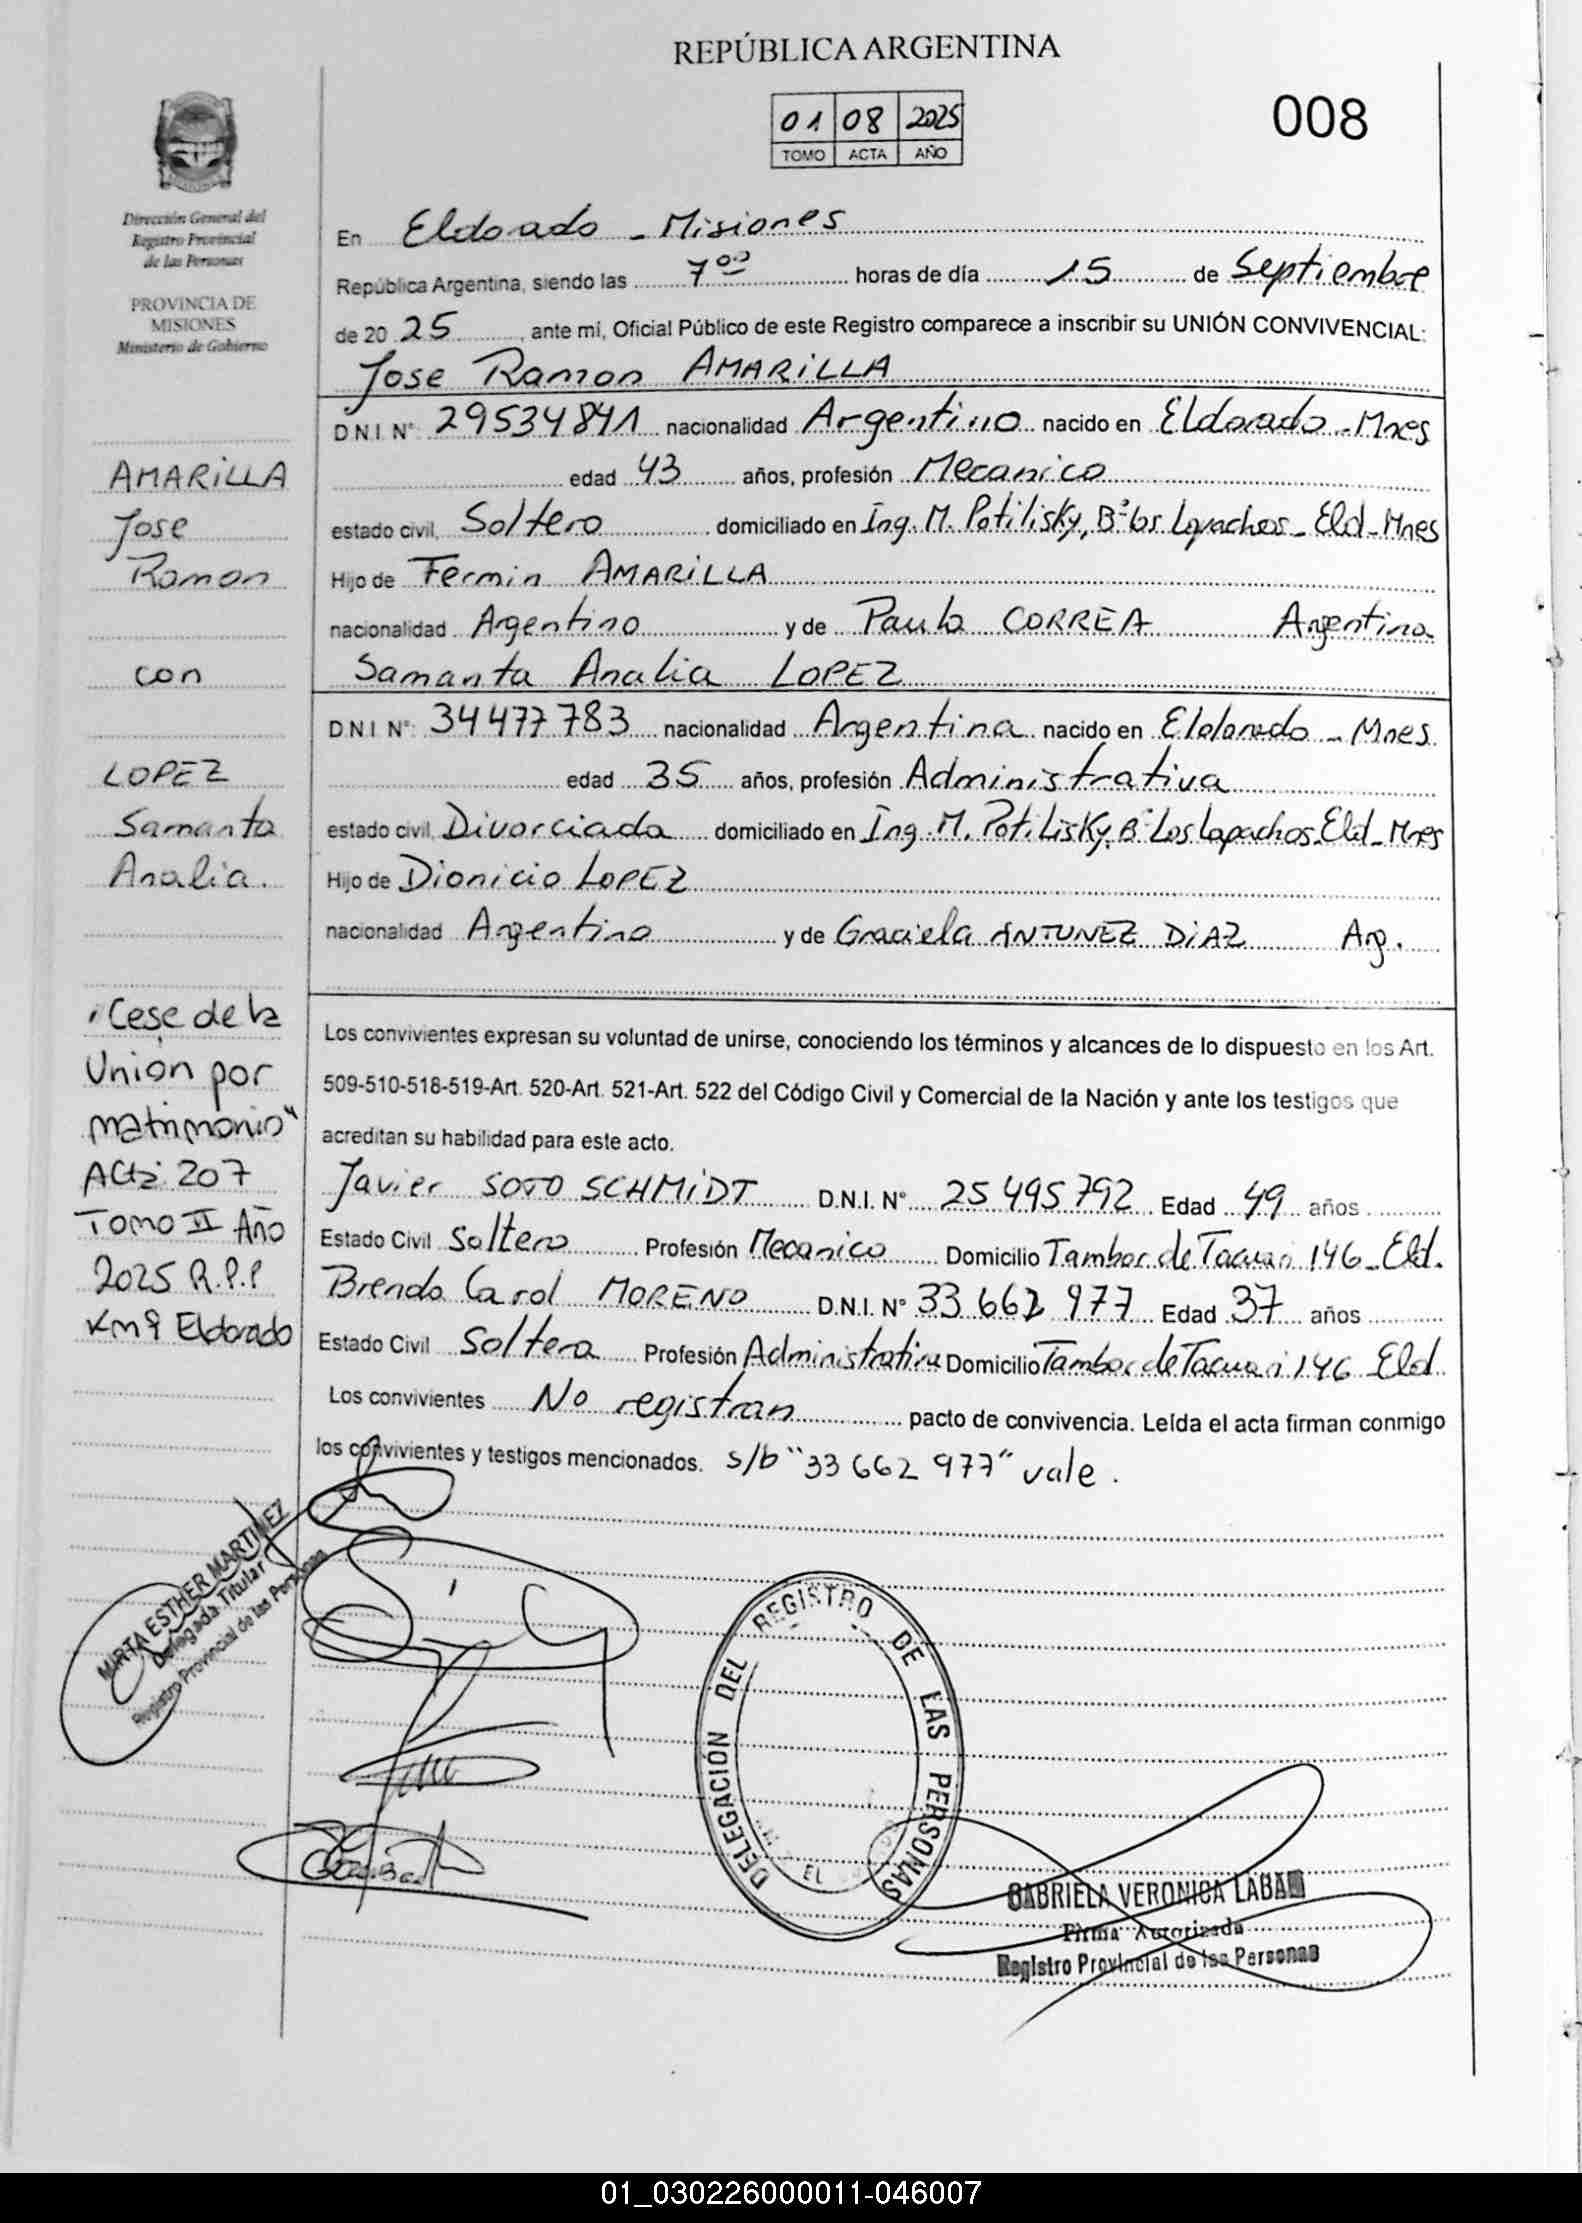 REPÚBLICA ARGENTINA
01 08 2025
TOMO ACTA AÑO
008
Dirección General del
Registro Provincial
de las Personas
PROVINCIA DE
MISIONES
Ministerio de Gobierno
En Eldorado - Misiones
República Argentina, siendo las 7⁰⁰ horas de día 15 de Septiembre
de 20 25, ante mi, Oficial Público de este Registro comparece a inscribir su UNIÓN CONVIVENCIAL:
Jose Ramon AMARILLA
D.N.I. N° 29534841 nacionalidad Argentino nacido en Eldorado - Mnes
edad 43 años, profesión Mecanico
estado civil, Soltero domiciliado en Ing. M. Potilisky, B° los Lapachos - Eld - Mnes
Hijo de Fermin AMARILLA
nacionalidad Argentino y de Paula CORREA Argentina
Samanta Analia LOPEZ
D.N.I N°: 34477783 nacionalidad Argentina nacido en Eldorado - Mnes.
edad 35 años, profesión Administrativa
estado civil, Divorciada domiciliado en Ing. M. Potilisky, B° Los Lapachos, Eld - Mnes
Hijo de Dionicio LOPEZ
nacionalidad Argentino y de Graciela ANTUNEZ DIAZ Arg.
AMARILLA
Jose
Ramon
con
LOPEZ
Samanta
Analia.
"Cese de la
Unión por
matrimonio"
Acta 207
Tomo II Año
2025 R.P.P
Km 9 Eldorado
Los convivientes expresan su voluntad de unirse, conociendo los términos y alcances de lo dispuesto en los Art.
509-510-518-519-Art. 520-Art. 521-Art. 522 del Código Civil y Comercial de la Nación y ante los testigos que
acreditan su habilidad para este acto.
Javier SOTO SCHMIDT D.N.I. N° 25 495 792 Edad 49 años
Estado Civil Soltero Profesión Mecanico Domicilio Tambor de Tacuari 146 - Eld.
Brenda Carol MORENO D.N.I. N° 33 662 977 Edad 37 años
Estado Civil Soltera Profesión Administrativa Domicilio Tambor de Tacuari 146 Eld
Los convivientes No registran pacto de convivencia. Leída el acta firman conmigo
los convivientes y testigos mencionados. s/b "33 662 977" vale.
MIRTA ESTHER MARTINEZ
Delegada Titular
Registro Provincial de las Personas
DELEGACIÓN DEL REGISTRO DE LAS PERSONAS
GABRIELA VERONICA
Firma Autorizada
Registro Provincial de las Personas
01_030226000011-046007